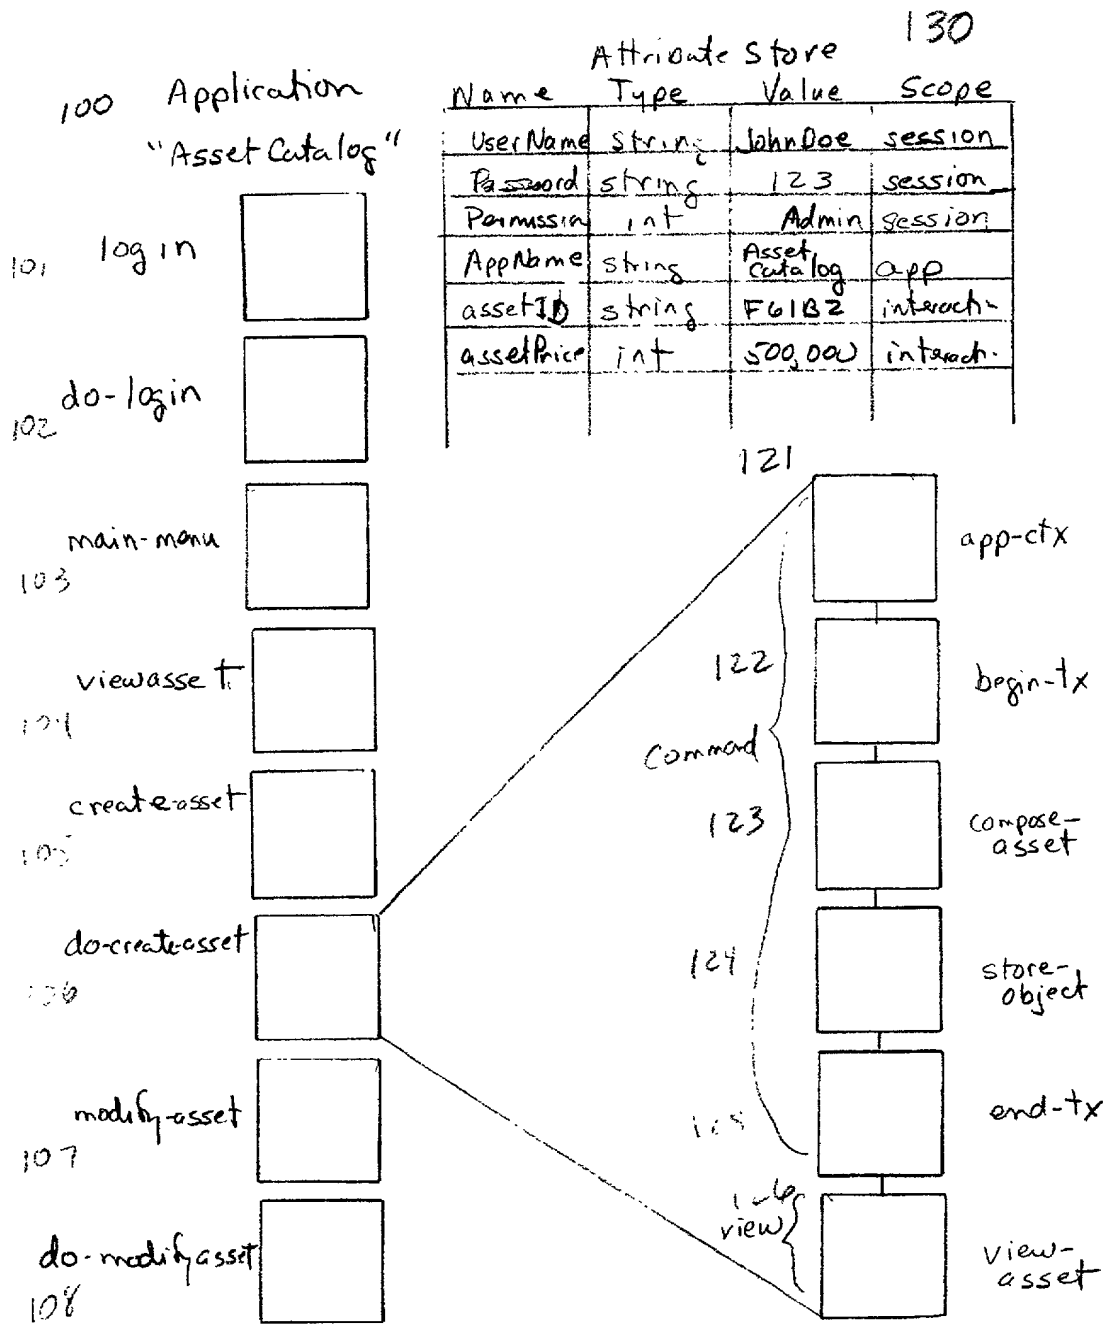 130
100 Application
"Asset Catalog"
Attribute Store
Name Type Value Scope
UserName string JohnDoe session
Password string 123 session
Permission int Admin session
AppName string Asset Catalog app
assetID string F61B2 interacti-
assetPrice int 500,000 interact.
101 login
102 do-login
main-menu
103
viewasset
104
create-asset
105
do-create-asset
106
modify-asset
107
do-modifyasset
108
121
app-ctx
122
begin-tx
Command
123
compose-
asset
124
store-
object
125
end-tx
view
view-
asset